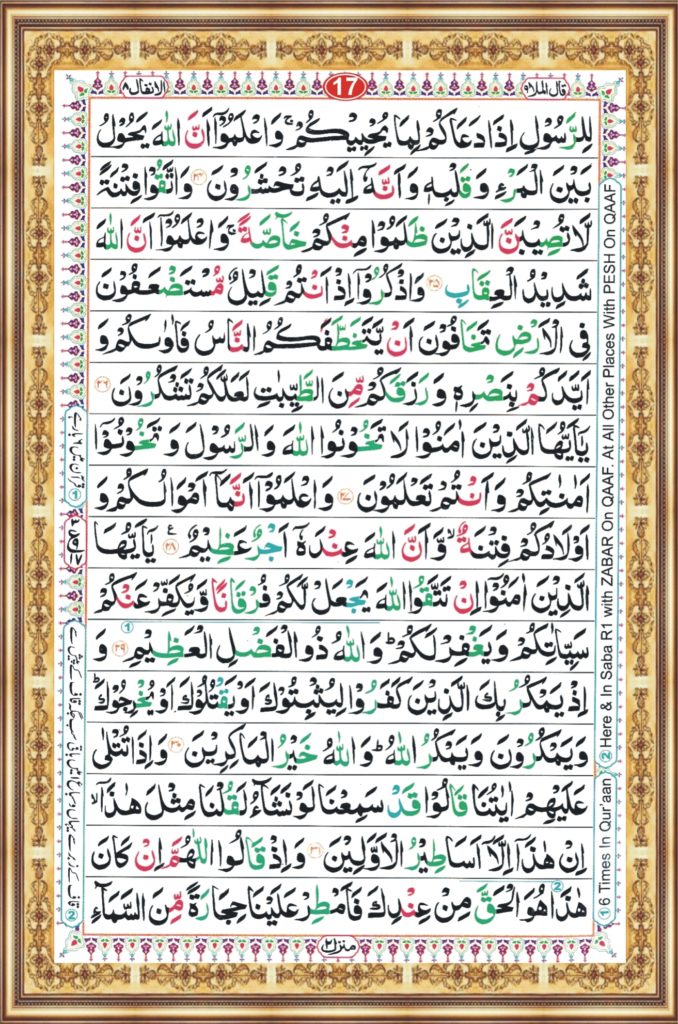 قال الملاء ٩
17
الانفال ٨
لِلرَّسُوْلِ اِذَا دَعَاكُمْ لِمَا يُحْيِيْكُمْ ۚ وَاعْلَمُوْٓا اَنَّ اللّٰهَ يَحُوْلُ
بَيْنَ الْمَرْءِ وَقَلْبِهٖ وَاَنَّهٗٓ اِلَيْهِ تُحْشَرُوْنَ ﴿۲۴﴾ وَاتَّقُوْا فِتْنَةً
لَّا تُصِيْبَنَّ الَّذِيْنَ ظَلَمُوْا مِنْكُمْ خَآصَّةً ۚ وَاعْلَمُوْٓا اَنَّ اللّٰهَ
شَدِيْدُ الْعِقَابِ ﴿۲۵﴾ وَاذْكُرُوْٓا اِذْ اَنْتُمْ قَلِيْلٌ مُّسْتَضْعَفُوْنَ
فِي الْاَرْضِ تَخَافُوْنَ اَنْ يَّتَخَطَّفَكُمُ النَّاسُ فَاٰوٰىكُمْ وَ
اَيَّدَكُمْ بِنَصْرِهٖ وَرَزَقَكُمْ مِّنَ الطَّيِّبٰتِ لَعَلَّكُمْ تَشْكُرُوْنَ ﴿۲۶﴾
يٰٓاَيُّهَا الَّذِيْنَ اٰمَنُوْا لَا تَخُوْنُوا اللّٰهَ وَالرَّسُوْلَ وَتَخُوْنُوْٓا
اَمٰنٰتِكُمْ وَاَنْتُمْ تَعْلَمُوْنَ ﴿۲۷﴾ وَاعْلَمُوْٓا اَنَّمَآ اَمْوَالُكُمْ وَ
اَوْلَادُكُمْ فِتْنَةٌ ۙ وَّاَنَّ اللّٰهَ عِنْدَهٗٓ اَجْرٌ عَظِيْمٌ ﴿۲۸﴾ يٰٓاَيُّهَا
الَّذِيْنَ اٰمَنُوْٓا اِنْ تَتَّقُوا اللّٰهَ يَجْعَلْ لَّكُمْ فُرْقَانًا وَّيُكَفِّرْ عَنْكُمْ
سَيِّاٰتِكُمْ وَيَغْفِرْ لَكُمْ ۗ وَاللّٰهُ ذُو الْفَضْلِ الْعَظِيْمِ ﴿۲۹﴾ وَ
اِذْ يَمْكُرُ بِكَ الَّذِيْنَ كَفَرُوْا لِيُثْبِتُوْكَ اَوْ يَقْتُلُوْكَ اَوْ يُخْرِجُوْكَ ۗ
وَيَمْكُرُوْنَ وَيَمْكُرُ اللّٰهُ ۗ وَاللّٰهُ خَيْرُ الْمَاكِرِيْنَ ﴿۳۰﴾ وَاِذَا تُتْلٰى
عَلَيْهِمْ اٰيٰتُنَا قَالُوْا قَدْ سَمِعْنَا لَوْ نَشَآءُ لَقُلْنَا مِثْلَ هٰذَآ ۙ
اِنْ هٰذَآ اِلَّآ اَسَاطِيْرُ الْاَوَّلِيْنَ ﴿۳۱﴾ وَاِذْ قَالُوا اللّٰهُمَّ اِنْ كَانَ
هٰذَا هُوَ الْحَقَّ مِنْ عِنْدِكَ فَاَمْطِرْ عَلَيْنَا حِجَارَةً مِّنَ السَّمَآءِ
منزل ٢
① 6 Times In Qur'aan ② Here & In Saba R1 with ZABAR On QAAF. At All Other Places With PESH On QAAF
① قرآن میں ٦ بار ہے